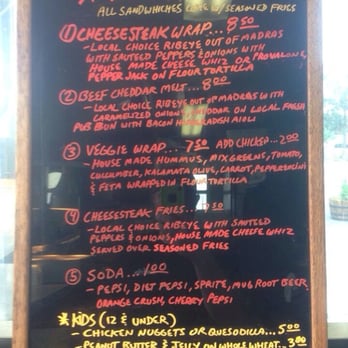 ALL SANDWHICHES COME W/ SEASONED FRIES
① CHEESESTEAK WRAP... 8 50
- LOCAL CHOICE RIBEYE OUT OF MADRAS
WITH SAUTEED PEPPERS & ONIONS WITH
HOUSE MADE CHEESE WHIZ OR PROVALONE,
PEPPER JACK ON FLOUR TORTILLA
② BEEF CHEDDAR MELT... 8 00
- LOCAL CHOICE RIBEYE OUT OF MADRAS WITH
CARAMELIZED ONIONS, CHEDDAR ON LOCAL FRESH
PUB BUN WITH BACON HORSERADISH AIOLI
③ VEGGIE WRAP... 7 50 ADD CHICKEN... 2 00
- HOUSE MADE HUMMUS, MIX GREENS, TOMATO,
CUCUMBER, KALAMATA OLIVE, CARROT, PEPPERONCINI
& FETA WRAPPED IN FLOUR TORTILLA
④ CHEESESTEAK FRIES... 50
- LOCAL CHOICE RIBEYE WITH SAUTEED
PEPPERS & ONIONS, HOUSE MADE CHEESE WHIZ
SERVED OVER SEASONED FRIES
⑤ SODA... 1.00
- PEPSI, DIET PEPSI, SPRITE, MUG ROOT BEER,
ORANGE CRUSH, CHERRY PEPSI
KIDS (12 & UNDER)
- CHICKEN NUGGETS OR QUESODILLA... 5 00
- PEANUT BUTTER & JELLY ON WHOLE WHEAT... 3 00